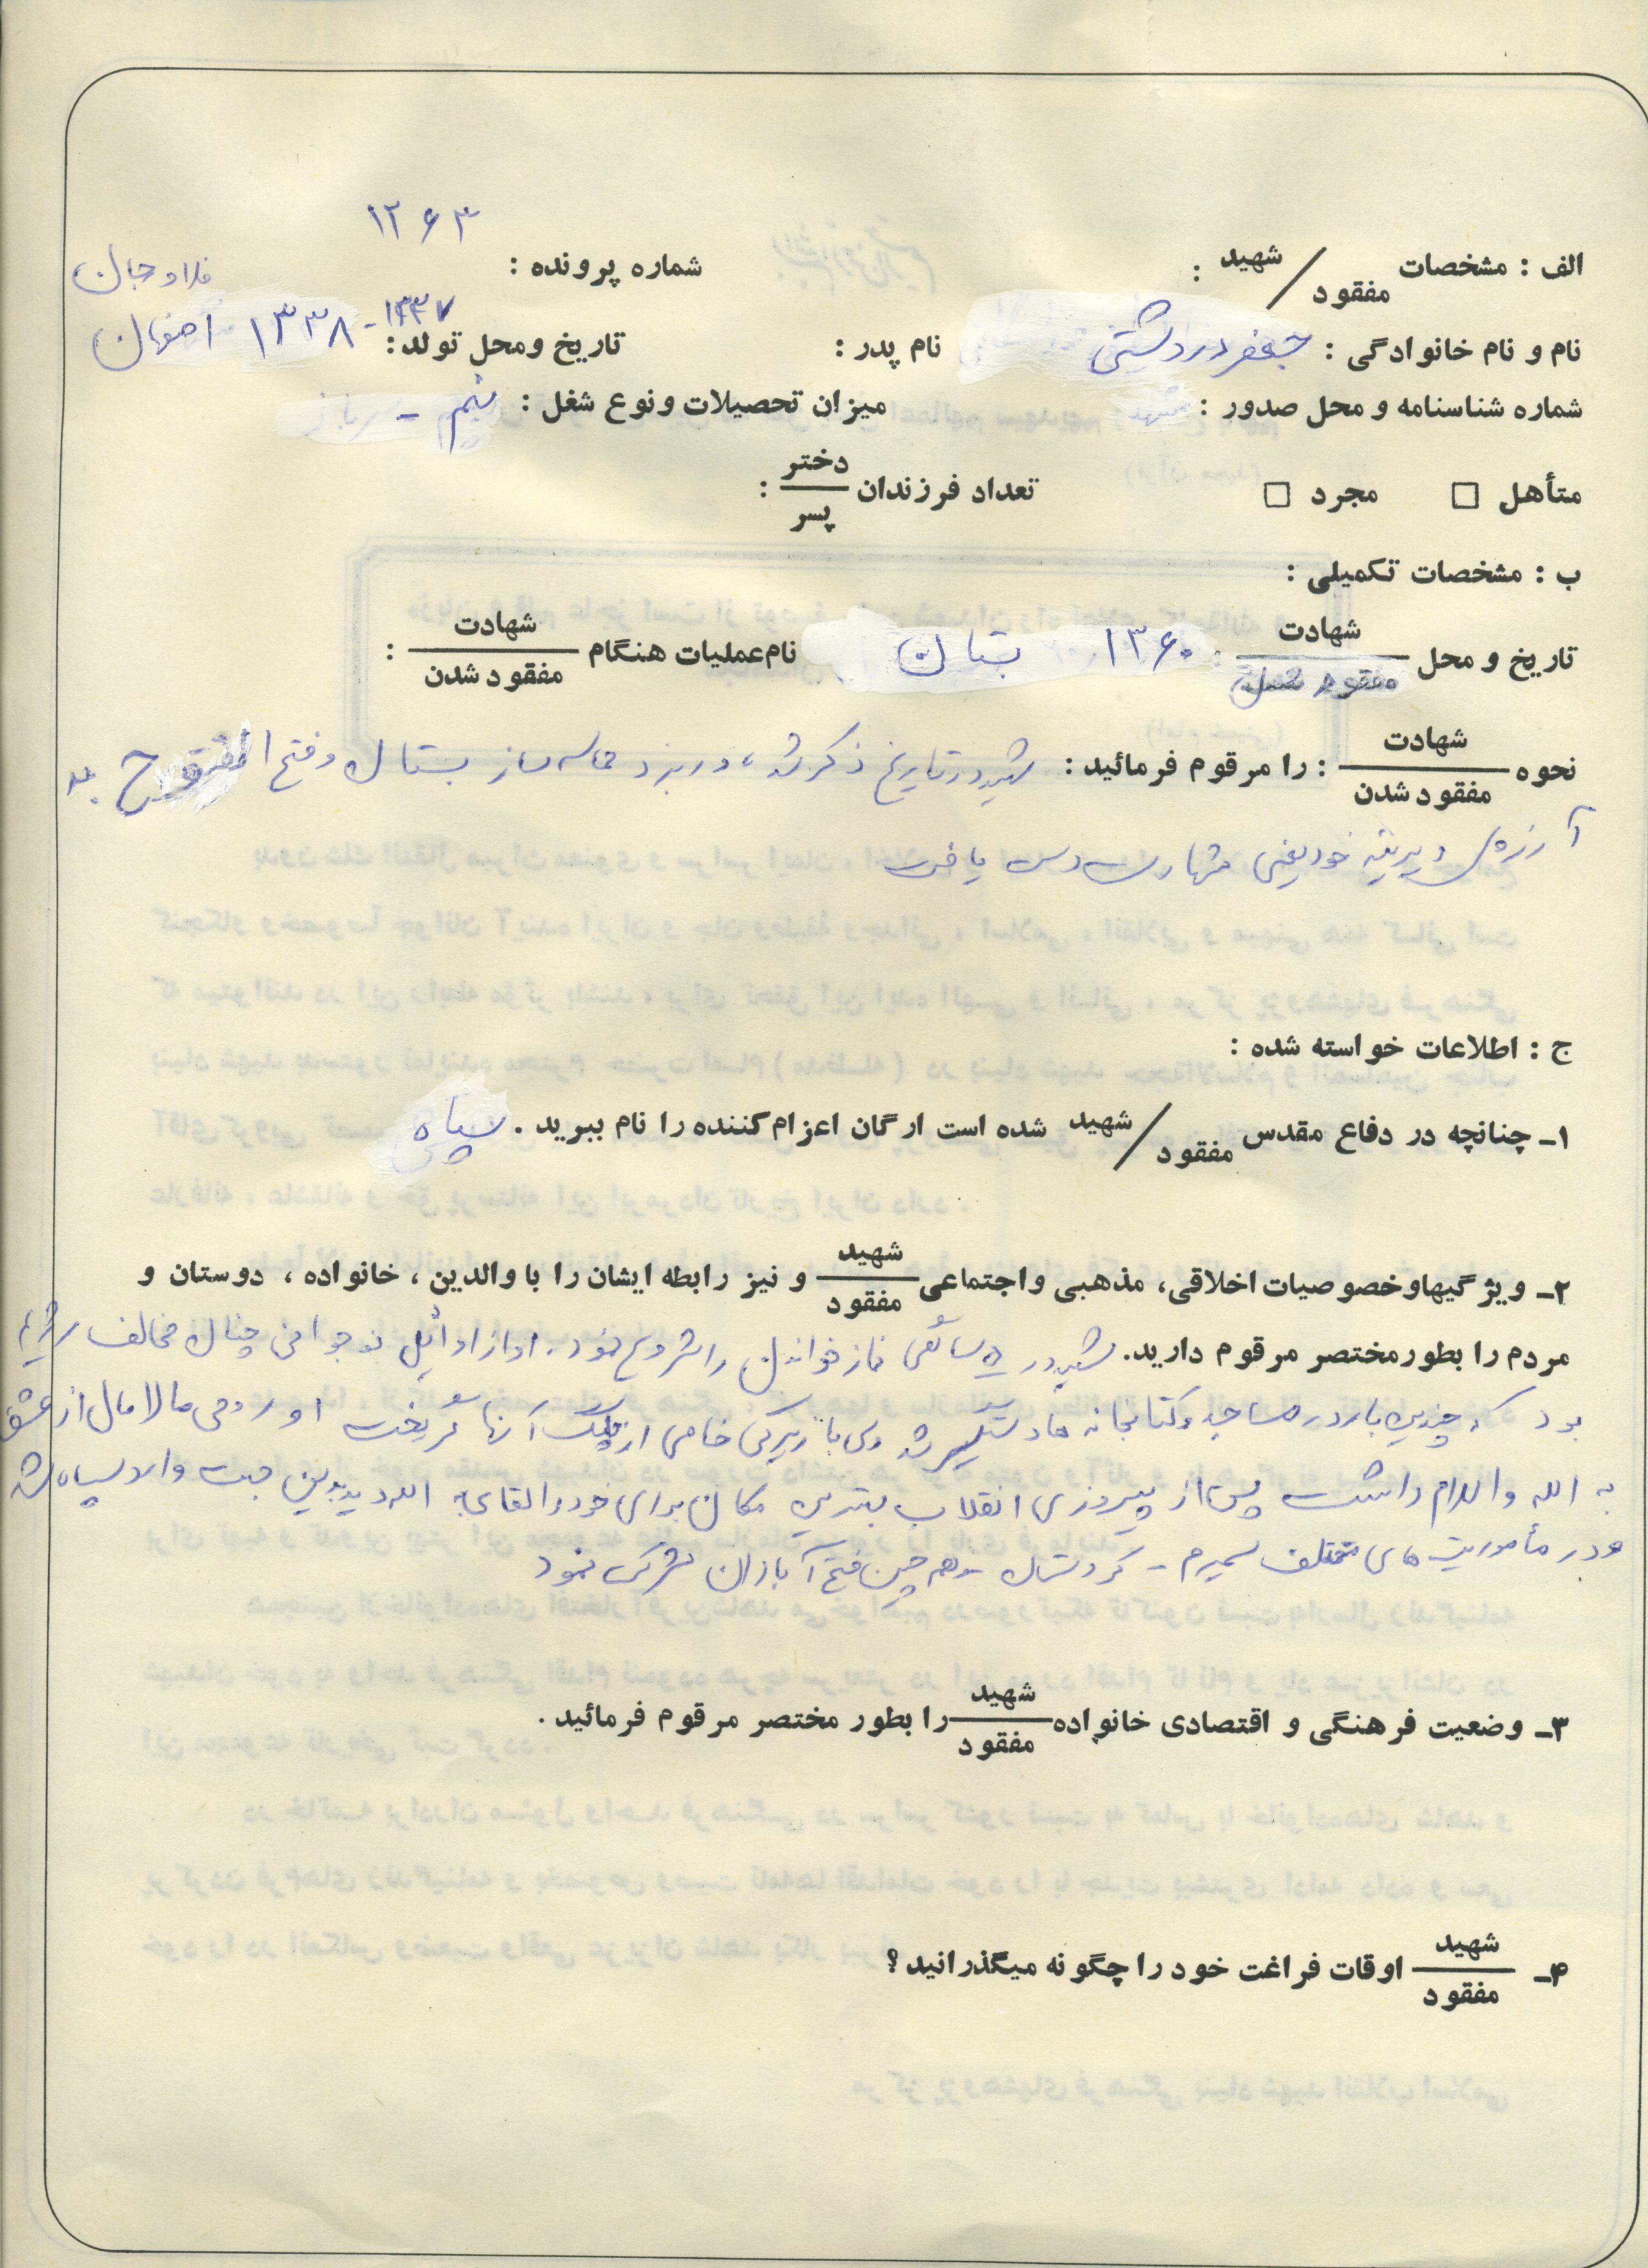 ۱۲۶۳
الف : مشخصات شهید / مفقود : شماره پرونده : فلاورجان
نام و نام خانوادگی : جعفر دردشتی نام پدر : تاریخ و محل تولد : ۱۳۳۷ - ۱۳۳۸ اصفهان
شماره شناسنامه و محل صدور : میزان تحصیلات و نوع شغل :
متأهل □ مجرد □ تعداد فرزندان دختر / پسر :
ب : مشخصات تکمیلی :
تاریخ و محل شهادت / مفقود شدن : ۱۳۶۰ بستان نام عملیات هنگام شهادت / مفقود شدن :
نحوه شهادت / مفقود شدن : را مرقوم فرمائید : شهید در تاریخ ذکر شده در نبرد حماسه ساز بستان و فتح الفتوح به
آرزوی دیرینه خود یعنی شهادت دست یافت
ج : اطلاعات خواسته شده :
۱ـ چنانچه در دفاع مقدس شهید / مفقود شده است ارگان اعزام کننده را نام ببرید . سپاه
۲ـ ویژگیها و خصوصیات اخلاقی، مذهبی و اجتماعی شهید / مفقود و نیز رابطه ایشان را با والدین ، خانواده ، دوستان و
مردم را بطور مختصر مرقوم دارید. شهید در سالگی نماز خواندن را شروع نمود. او از اوائل نوجوانی چنان مخالف رژیم
بود که چندین بار در مساجد و کتابخانه ها دستگیر شد ولی با زیرکی خاصی از چنگ آنها گریخت او روحی مالامال از عشق
به الله و امام داشت پس از پیروزی انقلاب بهترین مکان برای خود و لقای الله دید بدین جهت وارد سپاه شد
و در مأموریت های مختلف سمیرم - کردستان - و هم چنین فتح آبادان شرکت نمود
۳ـ وضعیت فرهنگی و اقتصادی خانواده شهید / مفقود را بطور مختصر مرقوم فرمائید .
۴ـ شهید / مفقود اوقات فراغت خود را چگونه میگذرانید ؟